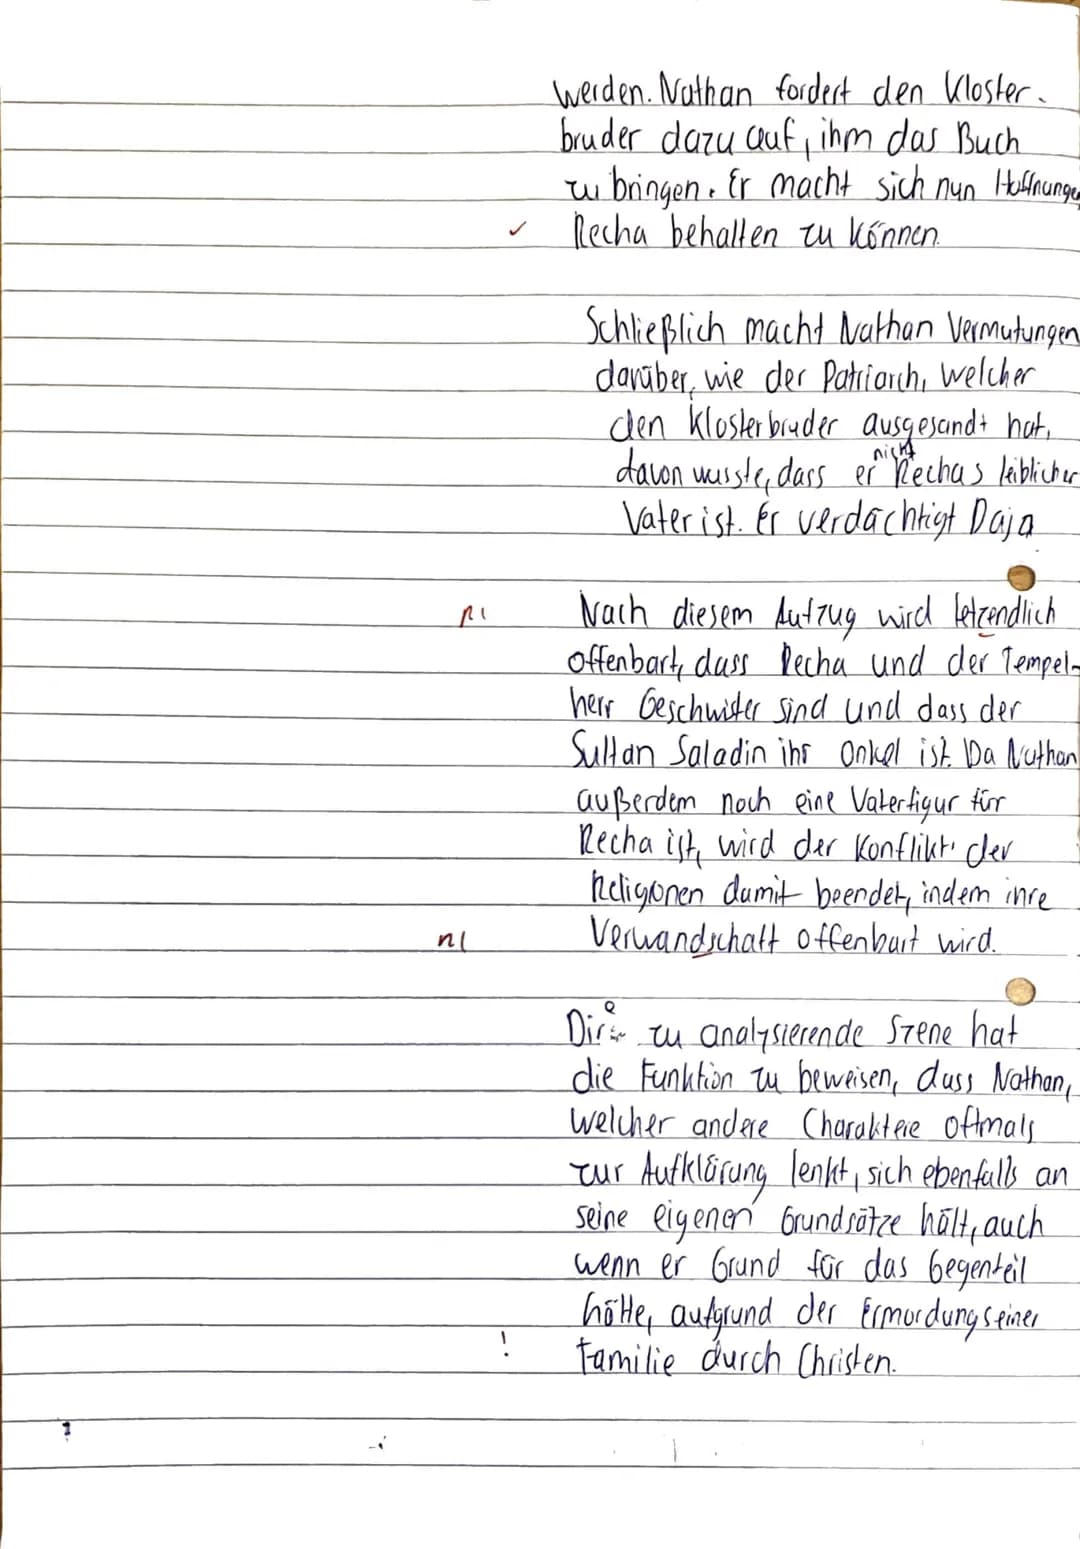 werden. Nathan fordert den Kloster-
bruder dazu auf, ihm das Buch
zu bringen. Er macht sich nun Hoffnungen
✓ Recha behalten zu können.
Schließlich macht Nathan Vermutungen
darüber, wie der Patriarch, welcher
den Klosterbruder ausgesandt hat,
davon wusste, dass er nicht Rechas leiblicher
Vater ist. Er verdächtigt Daja
Nach diesem Aufzug wird letzendlich
offenbart, dass Recha und der Tempel-
herr Geschwister sind und dass der
Sultan Saladin ihr Onkel ist. Da Nathan
außerdem noch eine Vaterfigur für
Recha ist, wird der Konflikt der
Religionen damit beendet, indem ihre
Verwandschaft offenbart wird.
Die zu analysierende Szene hat
die Funktion zu beweisen, dass Nathan,
welcher andere Charaktere oftmals
zur Aufklärung lenkt, sich ebenfalls an
seine eigenen Grundsätze hält, auch
wenn er Grund für das Gegenteil
hätte, aufgrund der Ermordung seiner
! Familie durch Christen.